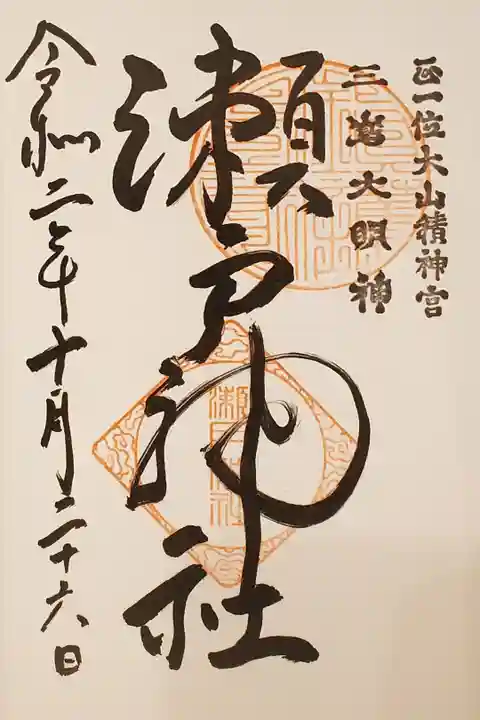 正一位大山積神宮
三嶌大明神
瀬戸神社
瀬戸神社
令和二年十月二十六日